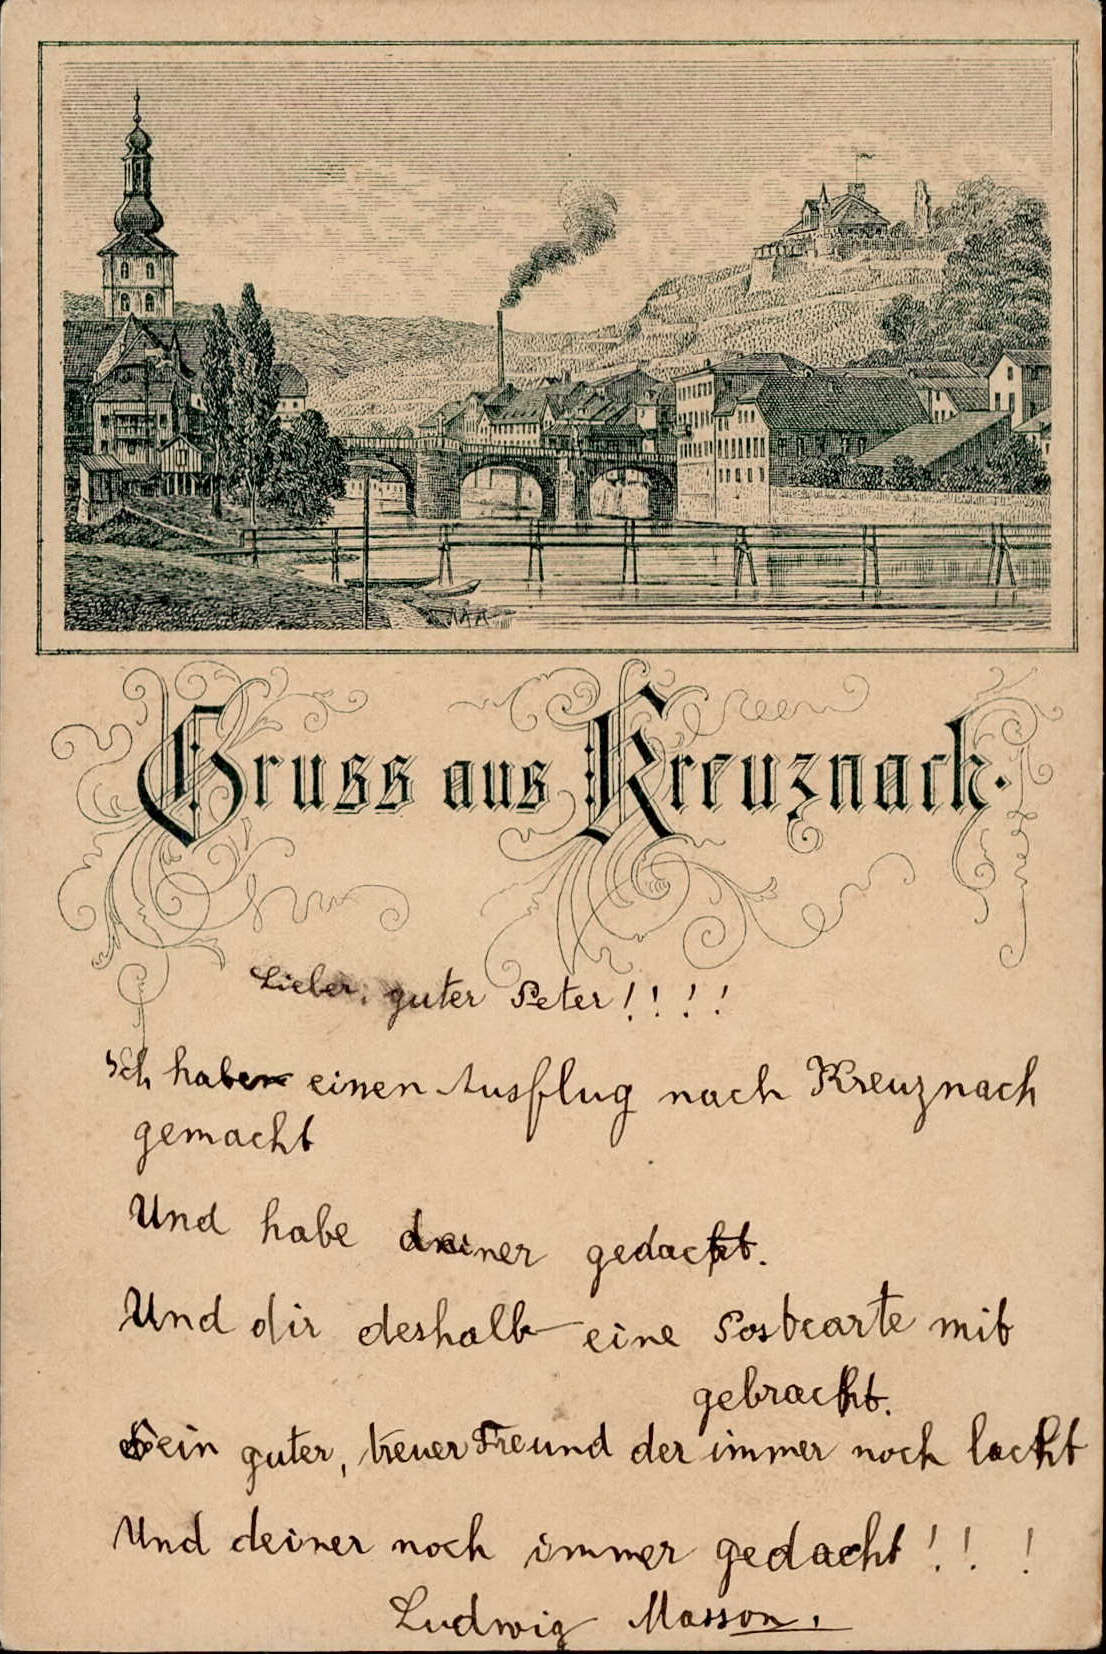 Gruss aus Kreuznach.
Lieber, guter Peter!!!!
Ich haben einen Ausflug nach Kreuznach
gemacht
Und habe deiner gedacht.
Und dir deshalb eine Postcarte mit
gebracht.
Dein guter, treuer Freund der immer noch lacht
Und deiner noch immer gedacht!!!
Ludwig Masson.